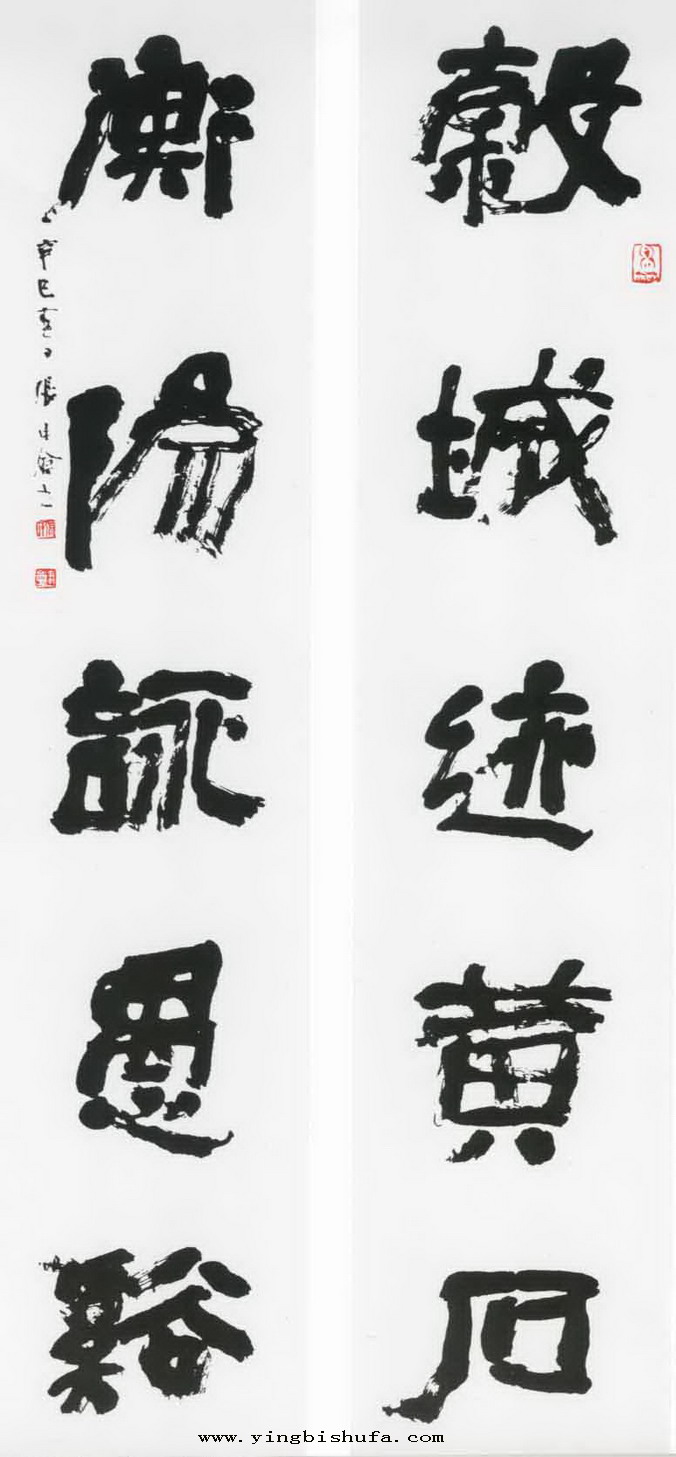 穀城迹黄石
衡陽詠愚谿
辛巳 張建會
www.yingbishufa.com